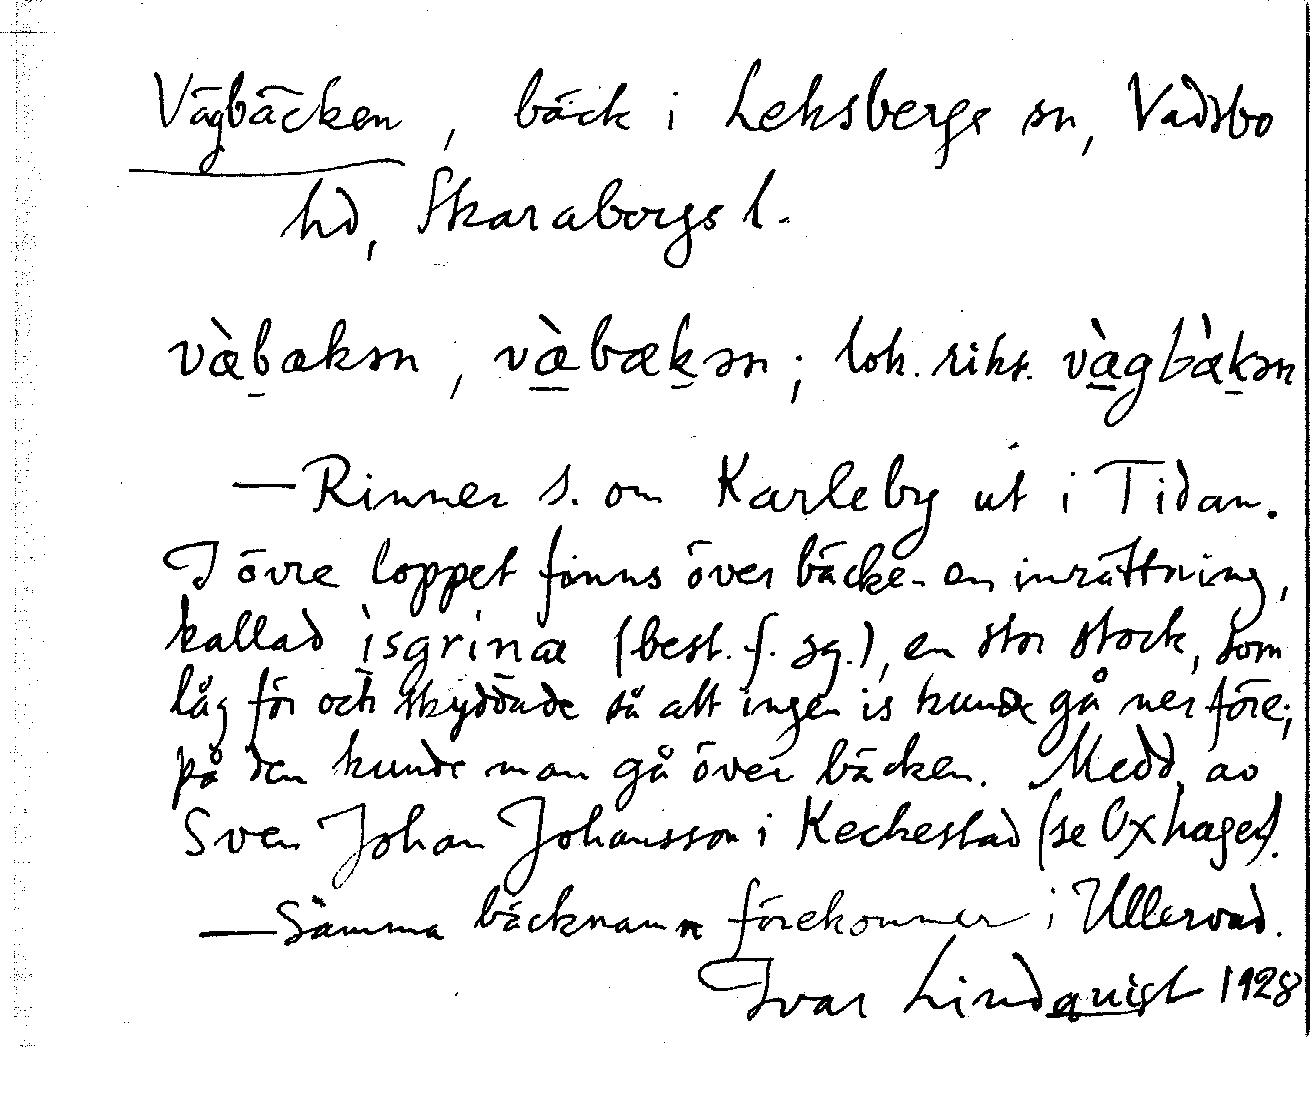 Vägbäcken, bäck i Leksbergs sn, Vadsbo
hd, Skaraborgs l.
væ̀bækən, væ̀bækən; lok. riks. væ̀gbæ̀kən
— Rinner s. om Karleby ut i Tidan.
I övre loppet finns över bäcken en inrättning,
kallad ìsgrinæ (best. f. sg.), en stor stock, som
låg för och skyddade så att ingen is kunde gå ner före;
på den kunde man gå över bäcken. Medd. av
Sven Johan Johansson i Keckestad (se Oxhagen).
— Samma bäcknamn förekommer i Ullervad.
Ivar Lindquist 1928